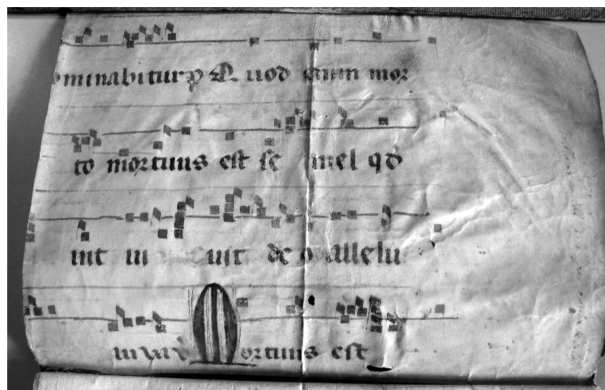 minabitur Quod enim mor
to mortuus est se mel qd
int ui uit de o allelu
ortuus est